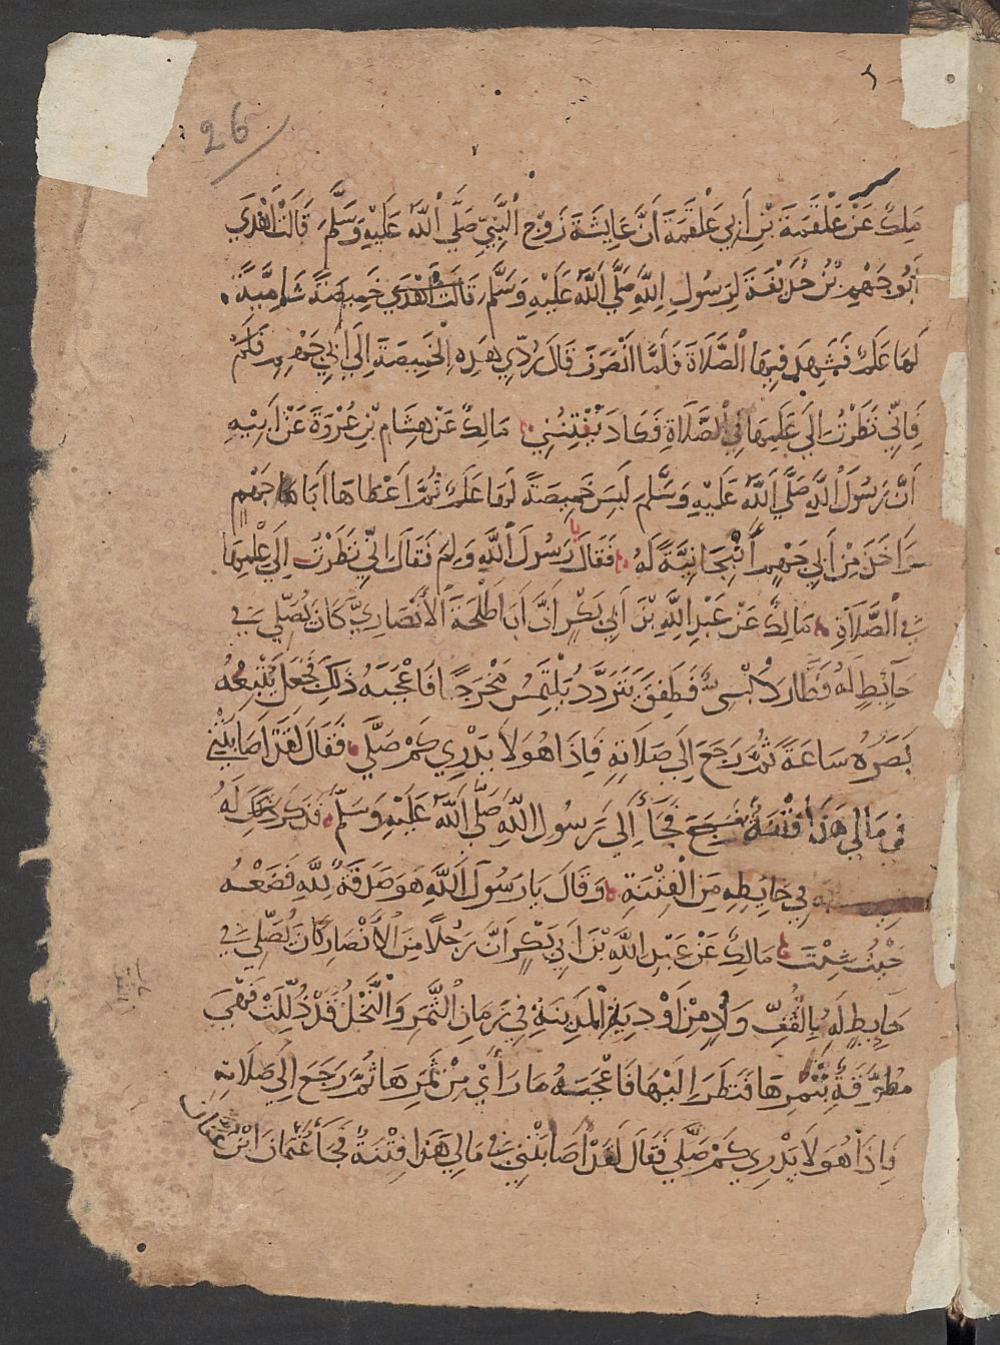 26
مَلِكٌ عَنْ عَلْقَمَةَ بْنِ أَبِي عَلْقَمَةَ أَنَّ عَايِشَةَ زَوْجَ النَّبِيِّ صَلَّي اللَّهُ عَلَيْهِ وَسَلَّمَ قَالَتْ أَهْدَي
أَبُو جَهْمِ بْنُ حُذَيْفَةَ لِرَسُولِ اللَّهِ صَلَّي اللَّهُ عَلَيْهِ وَسَلَّمَ قَالَتْ أَهْدَي خَمِيصَةً شَامِيَّةً
لَهَا عَلَمٌ فَشَهِدَ فِيهَا الصَّلَاةَ فَلَمَّا انْصَرَفَ قَالَ رُدِّي هَذِهِ الْخَمِيصَةَ إِلَي أَبِي جَهْمٍ
فَإِنِّي نَظَرْتُ إِلَي عَلَمِهَا فِي الصَّلَاةِ فَكَادَ يَفْتِنُنِي مَالِكٌ عَنْ هِشَامِ بْنِ عُرْوَةَ عَنْ أَبِيهِ
أَنَّ رَسُولَ اللَّهِ صَلَّي اللَّهُ عَلَيْهِ وَسَلَّمَ لَبِسَ خَمِيصَةً لَهَا عَلَمٌ ثُمَّ أَعْطَاهَا أَبَا جَهْمٍ
وَأَخَذَ مِنْ أَبِي جَهْمٍ أَنْبِجَانِيَّةً لَهُ فَقَالَ يَا رَسُولَ اللَّهِ وَلِمَ فَقَالَ إِنِّي نَظَرْتُ إِلَي عَلَمِهَا
فِي الصَّلَاةِ مَالِكٌ عَنْ عَبْدِ اللَّهِ بْنِ أَبِي بَكْرٍ أَنَّ أَبَا طَلْحَةَ الْأَنْصَارِيَّ كَانَ يُصَلِّي فِي
حَايِطٍ لَهُ فَطَارَ دُبْسِيٌّ فَطَفِقَ يَتَرَدَّدُ يَلْتَمِسُ مَخْرَجًا فَأَعْجَبَهُ ذَلِكَ فَجَعَلَ يُتْبِعُهُ
بَصَرَهُ سَاعَةً ثُمَّ رَجَعَ إِلَي صَلَاتِهِ فَإِذَا هُوَ لَا يَدْرِي كَمْ صَلَّي فَقَالَ لَقَدْ أَصَابَتْنِي
فِي مَالِي هَذَا فِتْنَةٌ فَجَأَ إِلَي رَسُولِ اللَّهِ صَلَّي اللَّهُ عَلَيْهِ وَسَلَّمَ فَذَكَرَ لَهُ
فِي حَايِطِهِ مِنَ الْفِتْنَةِ وَقَالَ يَا رَسُولَ اللَّهِ هُوَ صَدَقَةٌ لِلَّهِ فَضَعْهُ
حَيْثُ شِئْتَ مَالِكٌ عَنْ عَبْدِ اللَّهِ بْنِ أَبِي بَكْرٍ أَنَّ رَجُلًا مِنَ الْأَنْصَارِ كَانَ يُصَلِّي فِي
حَايِطٍ لَهُ بِالْقُفِّ وَادٍ مِنْ أَوْدِيَةِ الْمَدِينَةِ فِي زَمَانِ الثَّمَرِ وَالنَّخْلُ قَدْ ذُلِّلَتْ فَهْيَ
مُطَوَّقَةٌ بِثَمَرِهَا فَنَظَرَ إِلَيْهَا فَأَعْجَبَهُ مَا رَأَيْ مِنْ ثَمَرِهَا ثُمَّ رَجَعَ إِلَي صَلَاتِهِ
فَإِذَا هُوَ لَا يَدْرِي كَمْ صَلَّي فَقَالَ لَقَدْ أَصَابَتْنِي فِي مَالِي هَذَا فِتْنَةٌ فَجَأَ عُثْمَانَ ابْنَ عَفَّانَ